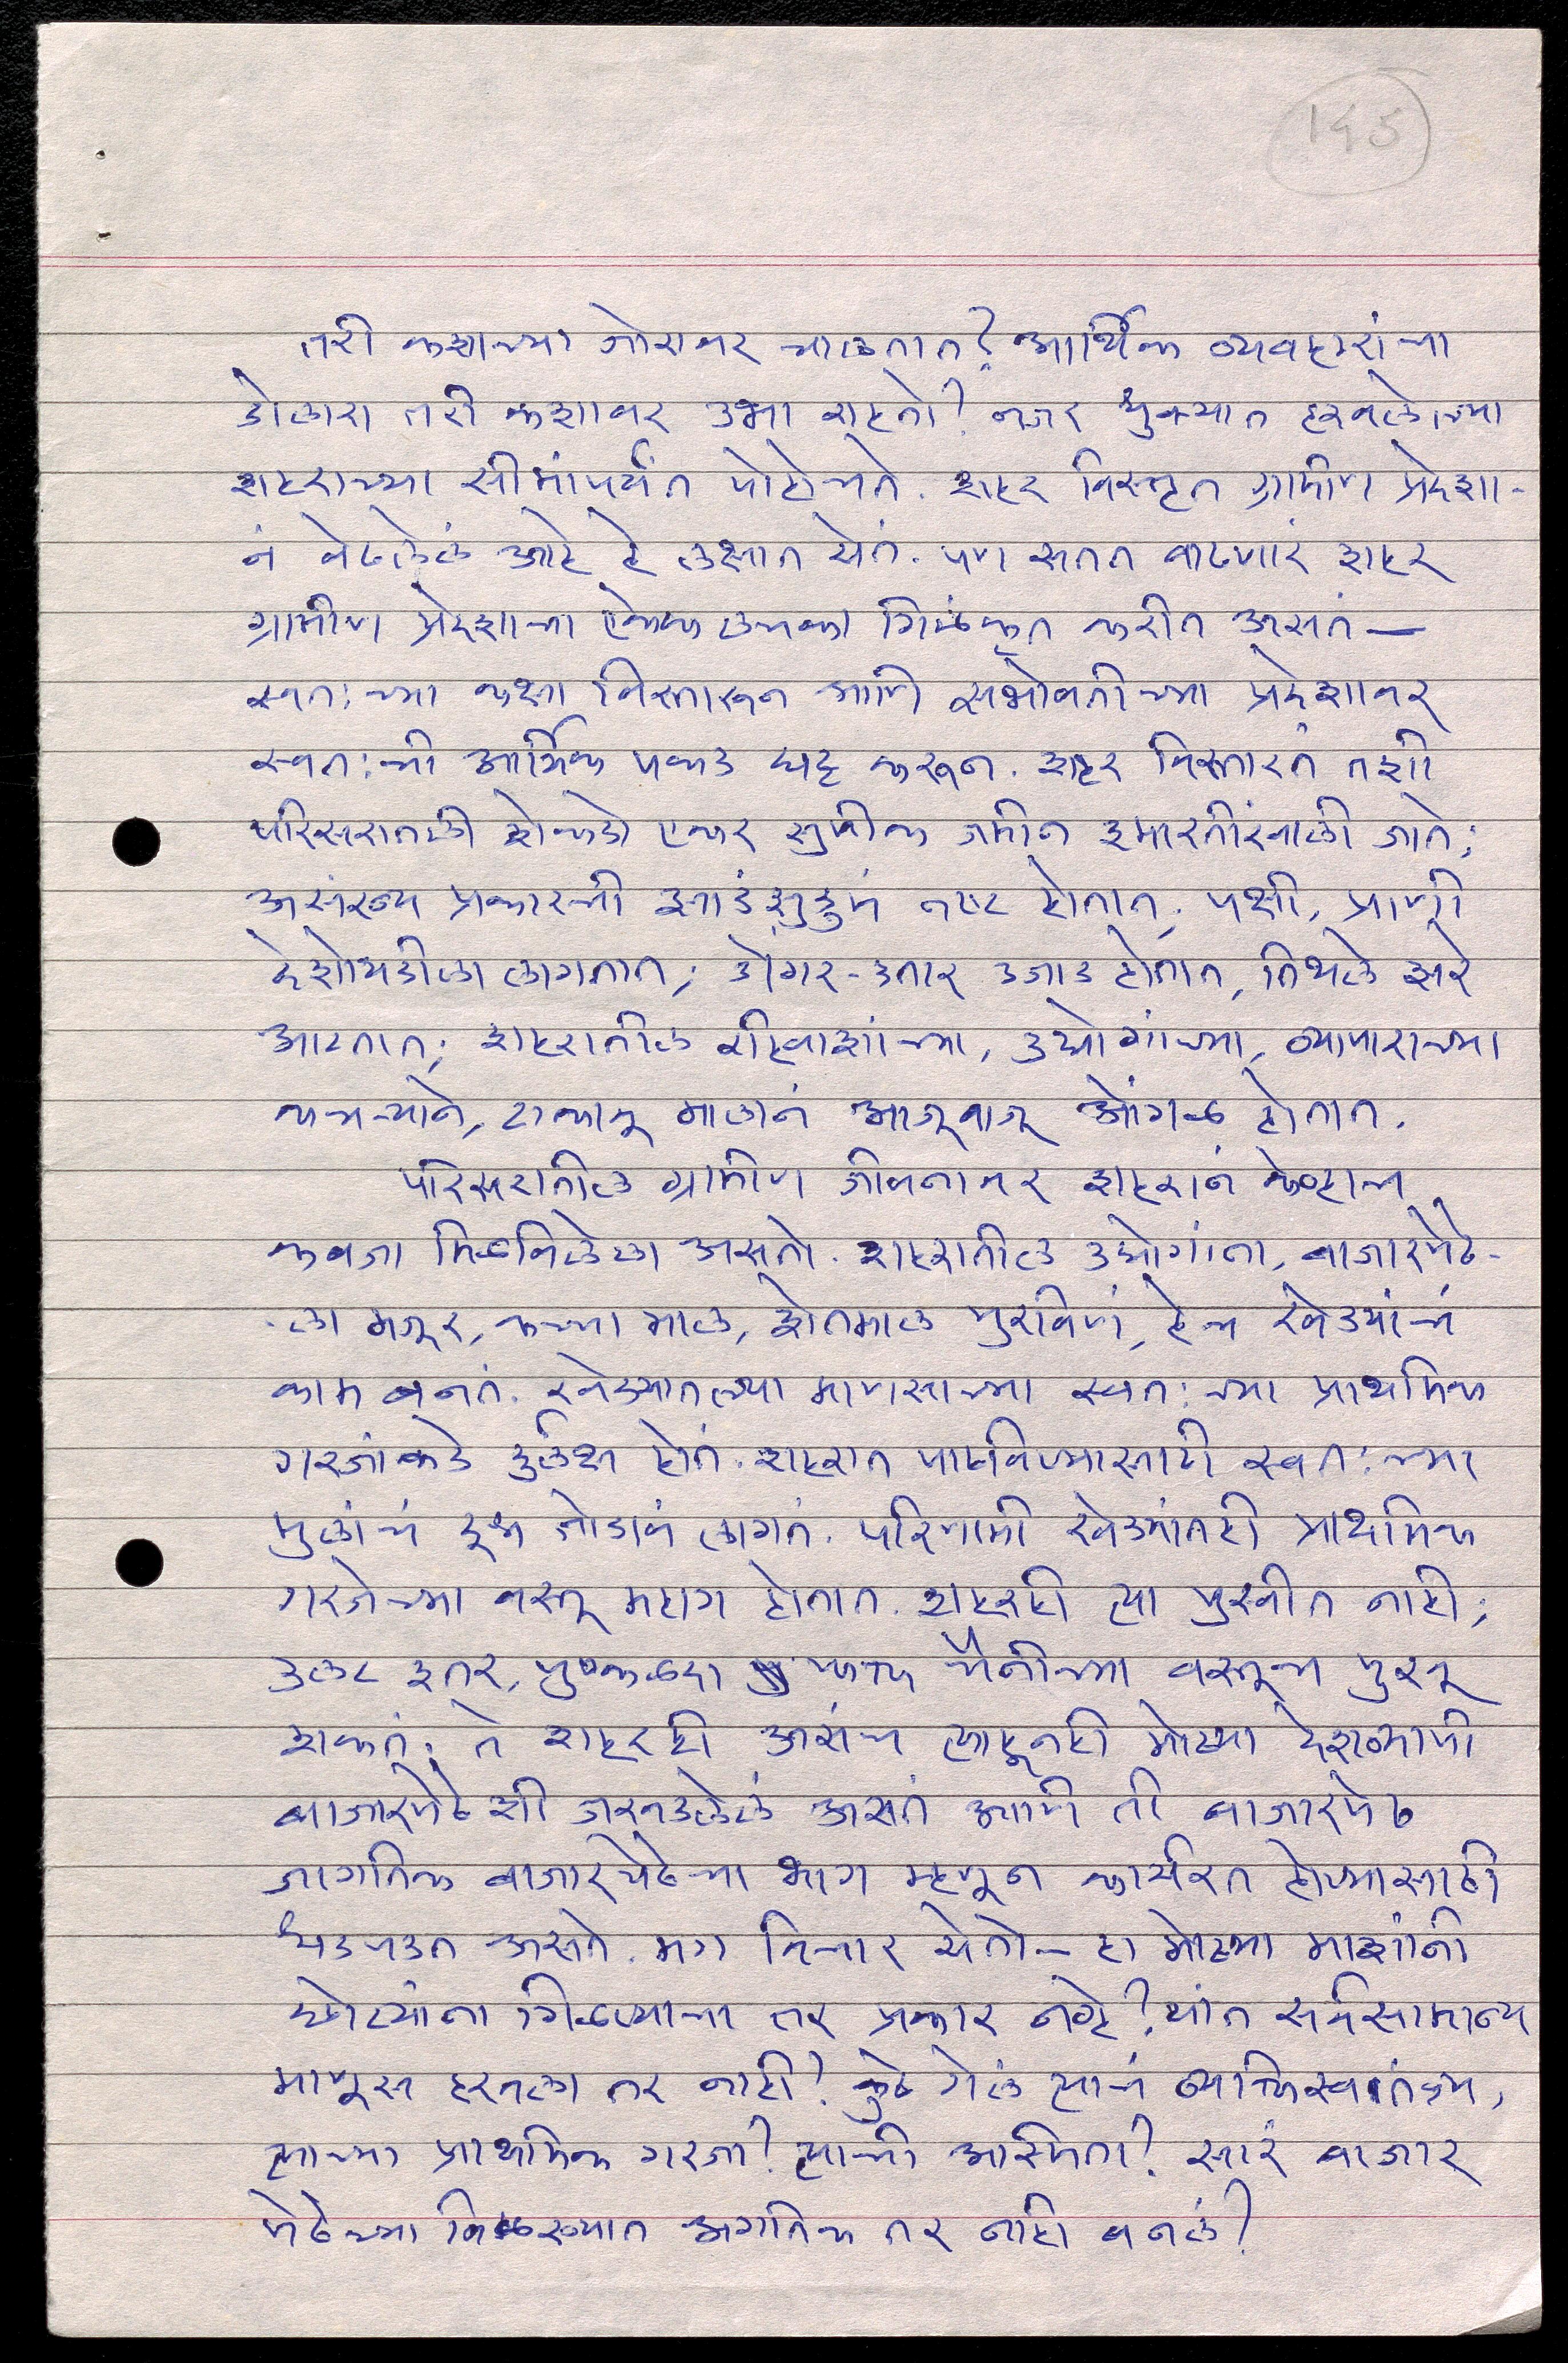 145
तरी कशाच्या जोरावर चालतात? आर्थिक व्यवहारांचा
डोलारा तरी कशावर उभा राहतो? नजर धुक्यात हरवलेल्या
शहराच्या सीमांपर्यंत पोहोचते. शहर विस्तृत ग्रामीण प्रदेशा-
नं वेढलेलं आहे हे लक्षात येतं. पण सतत वाढणारं शहर
ग्रामीण प्रदेशाचा ऐकेक लचका गिळंकृत करीत असतं —
स्वतः च्या कक्षा विस्तारून आणि सभोवतीच्या प्रदेशावर
स्वतः ची आर्थिक पकड घट्ट करून. शहर विस्तारतं तशी
परिसरातली शेकडो एकर सुपीक जमीन इमारतींखाली जाते;
असंख्य प्रकारची झाडंझुडुपं नष्ट होतात; पक्षी, प्राणी
देशोधडीला लागतात; डोंगर-उतार उजाड होतात, तिथले झरे
आटतात; शहरातील रहिवाशांच्या, उद्योगांच्या, व्यापाराच्या
कचऱ्याने, टाकाऊ मालानं आजूबाजू ओंगळ होतात.
परिसरातील ग्रामीण जीवनावर शहरानं केव्हाच
कबजा मिळविलेला असतो. शहरातील उद्योगांना, बाजारपेठे-
ला मजूर, कच्चा माल, शेतमाल पुरविणं, हेच खेड्यांचं
काम बनतं. खेड्यातल्या माणसाच्या स्वतः च्या प्राथमिक
गरजांकडे दुर्लक्ष होतं. शहरात पाठविण्यासाठी स्वतः च्या
मुलांचं दूध तोडावं लागतं. परिणामी खेड्यांतही प्राथमिक
गरजेच्या वस्तू महाग होतात. शहरही त्या पुरवीत नाही;
उलट इतर, पुष्कळदा फक्त चैनीच्या वस्तूच पुरवू
शकतं. ते शहरही असंच त्याहूनही मोठ्या देशव्यापी
बाजारपेठेशी जखडलेलं असतं आणि ती बाजारपेठ
जागतिक बाजारपेठेचा भाग म्हणून कार्यरत होण्यासाठी
धडपडत असते. मग विचार येतो — हा मोठ्या माशांनी
छोट्यांना गिळण्याचा तर प्रकार नव्हे? यांत सर्वसामान्य
माणूस हरवला तर नाही? कुठे गेलं त्याचं व्यक्तिस्वातंत्र्य,
त्याच्या प्राथमिक गरजा? त्याची अस्मिता? सारं बाजार
पेठेच्या विळख्यात अगतिक तर नाही बनलं?